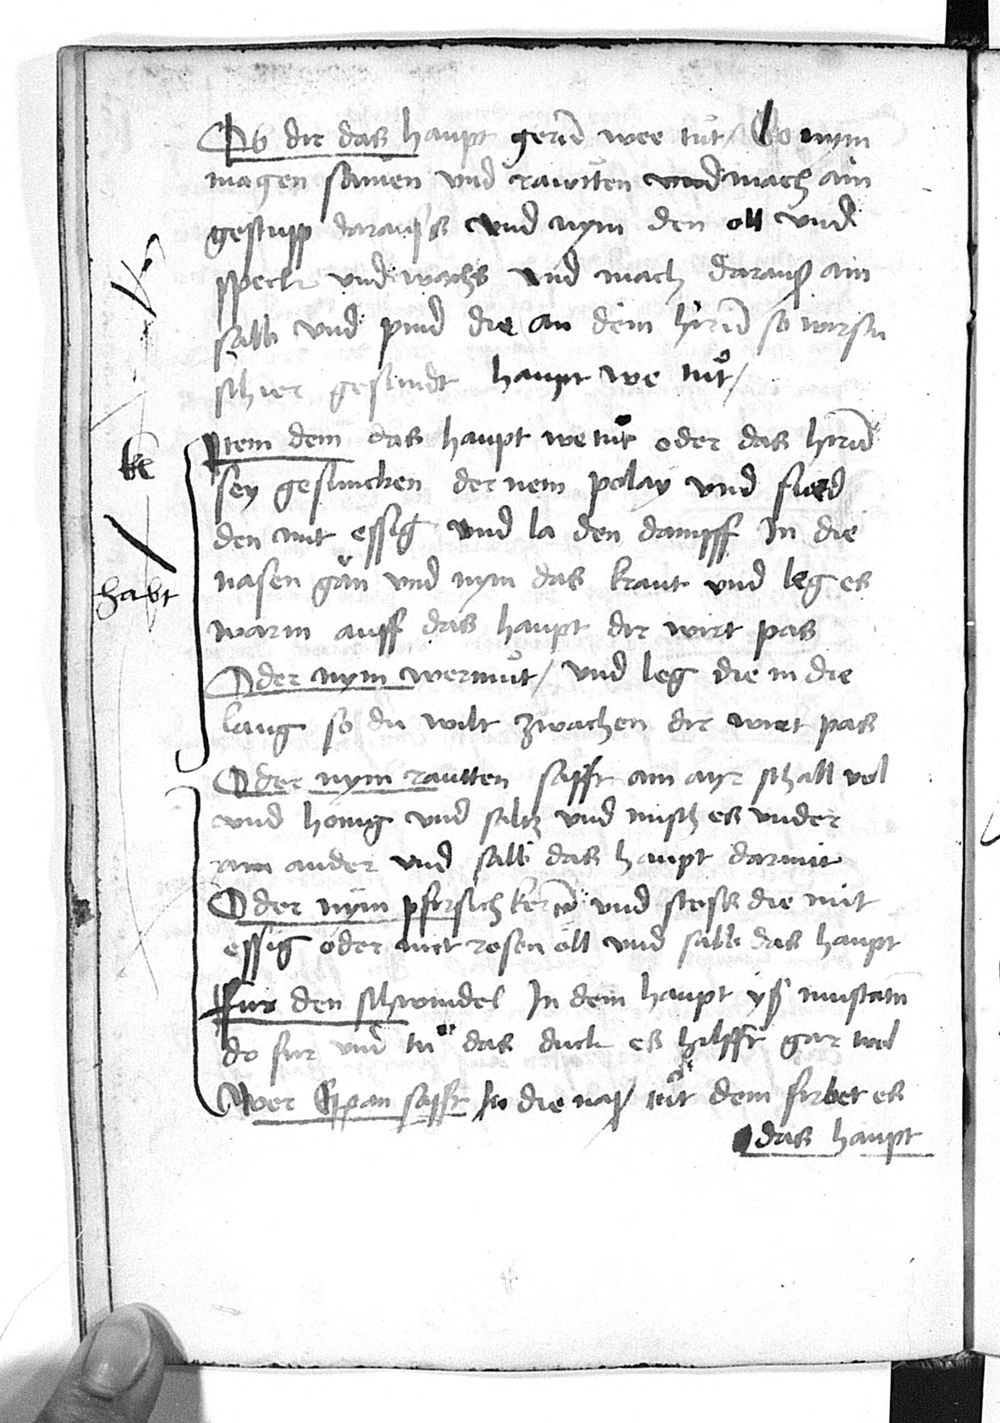 Ob dir das haupt gerind wee tut / So nym
magen samen und rawtten und mach ain
gestupp darauss und nym den oll und
speck und wachs und mach darauß ain
salb und pind die an dem hirnd so wirstu
schier gesundt haupt we tut /
Item dem das haupt we tut oder das hirnd
sey gesuncken der nem polay und sied
den mit essig und la den dampff In die
nasen gan und nym das kraut und leg es
warm auff das haupt dir wirt pas
Oder nym wermut / und leg die in die
laug so du wilt zwachen dir wirt pas
Oder nym rautten safft ain ayr schall vol
und honig und saltz und misch es under
ain ander und salb das haupt darmit
Oder nym pfersich kern und stoss die mit
essig oder mit rosen öll und salb das haupt
Fur den schwindel In dem haupt yß
do fur und tu das dick es hilfft gar wol
Wer safft In die naß tut dem furbet es
das haupt
habt